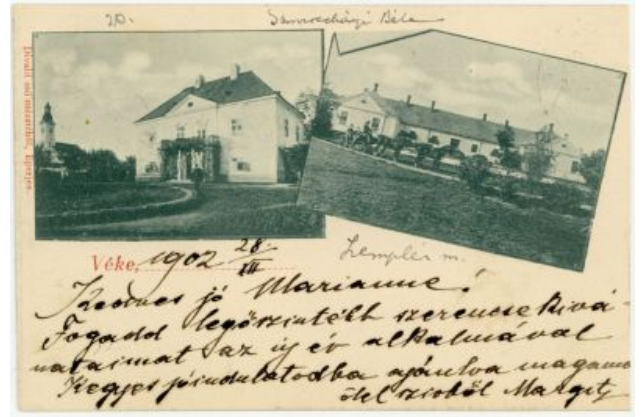 20.
Béla
Véke, 1902 28/XII
Zemplén m.
Kedves jó Marianne!
Fogadd legőszintébb szerencsekivá-
nataimat az új év alkalmával
Kegyes jóindulatodba ajánlva magamat
ölel szivből Margit